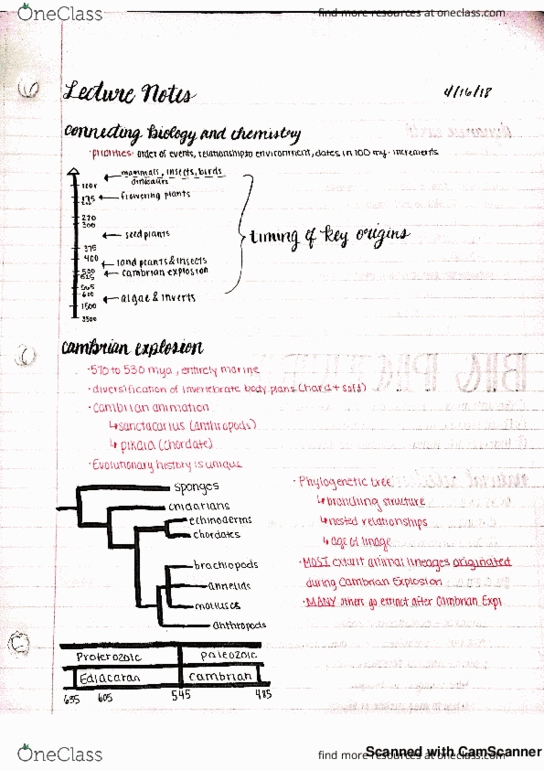 OneClass
find more resources at oneclass.com
Lecture Notes
4/16/18
connecting Biology and chemistry
·priorities- order of events, relationship to environment, dates in 100 my. increments
mammals, insects, birds
dinosaurs
flowering plants
seed plants
land plants & insects
cambrian explosion
algae & inverts
timing of key origins
175
270
300
375
400
1500
3500
cambrian explosion
·570 to 530 mya, entirely marine
·diversification of invertebrate body plans (hard + soft)
·Cambrian animation
↳sanctacarius (anthropods)
↳pikaia (chordate)
·Evolutionary history is unique
sponges
cnidarians
echinoderms
chordates
brachiopods
annelids
molluscs
anthropods
·Phylogenetic tree
↳branching structure
↳nested relationships
↳age of linage
·MOST extant animal lineages originated
during Cambrian Explosion
·MANY others go extinct after Cambrian Expl
Proterozoic
paleozoic
Ediacaran
cambrian
635
605
545
485
OneClass
find more resources at oneclass.com
Scanned with CamScanner